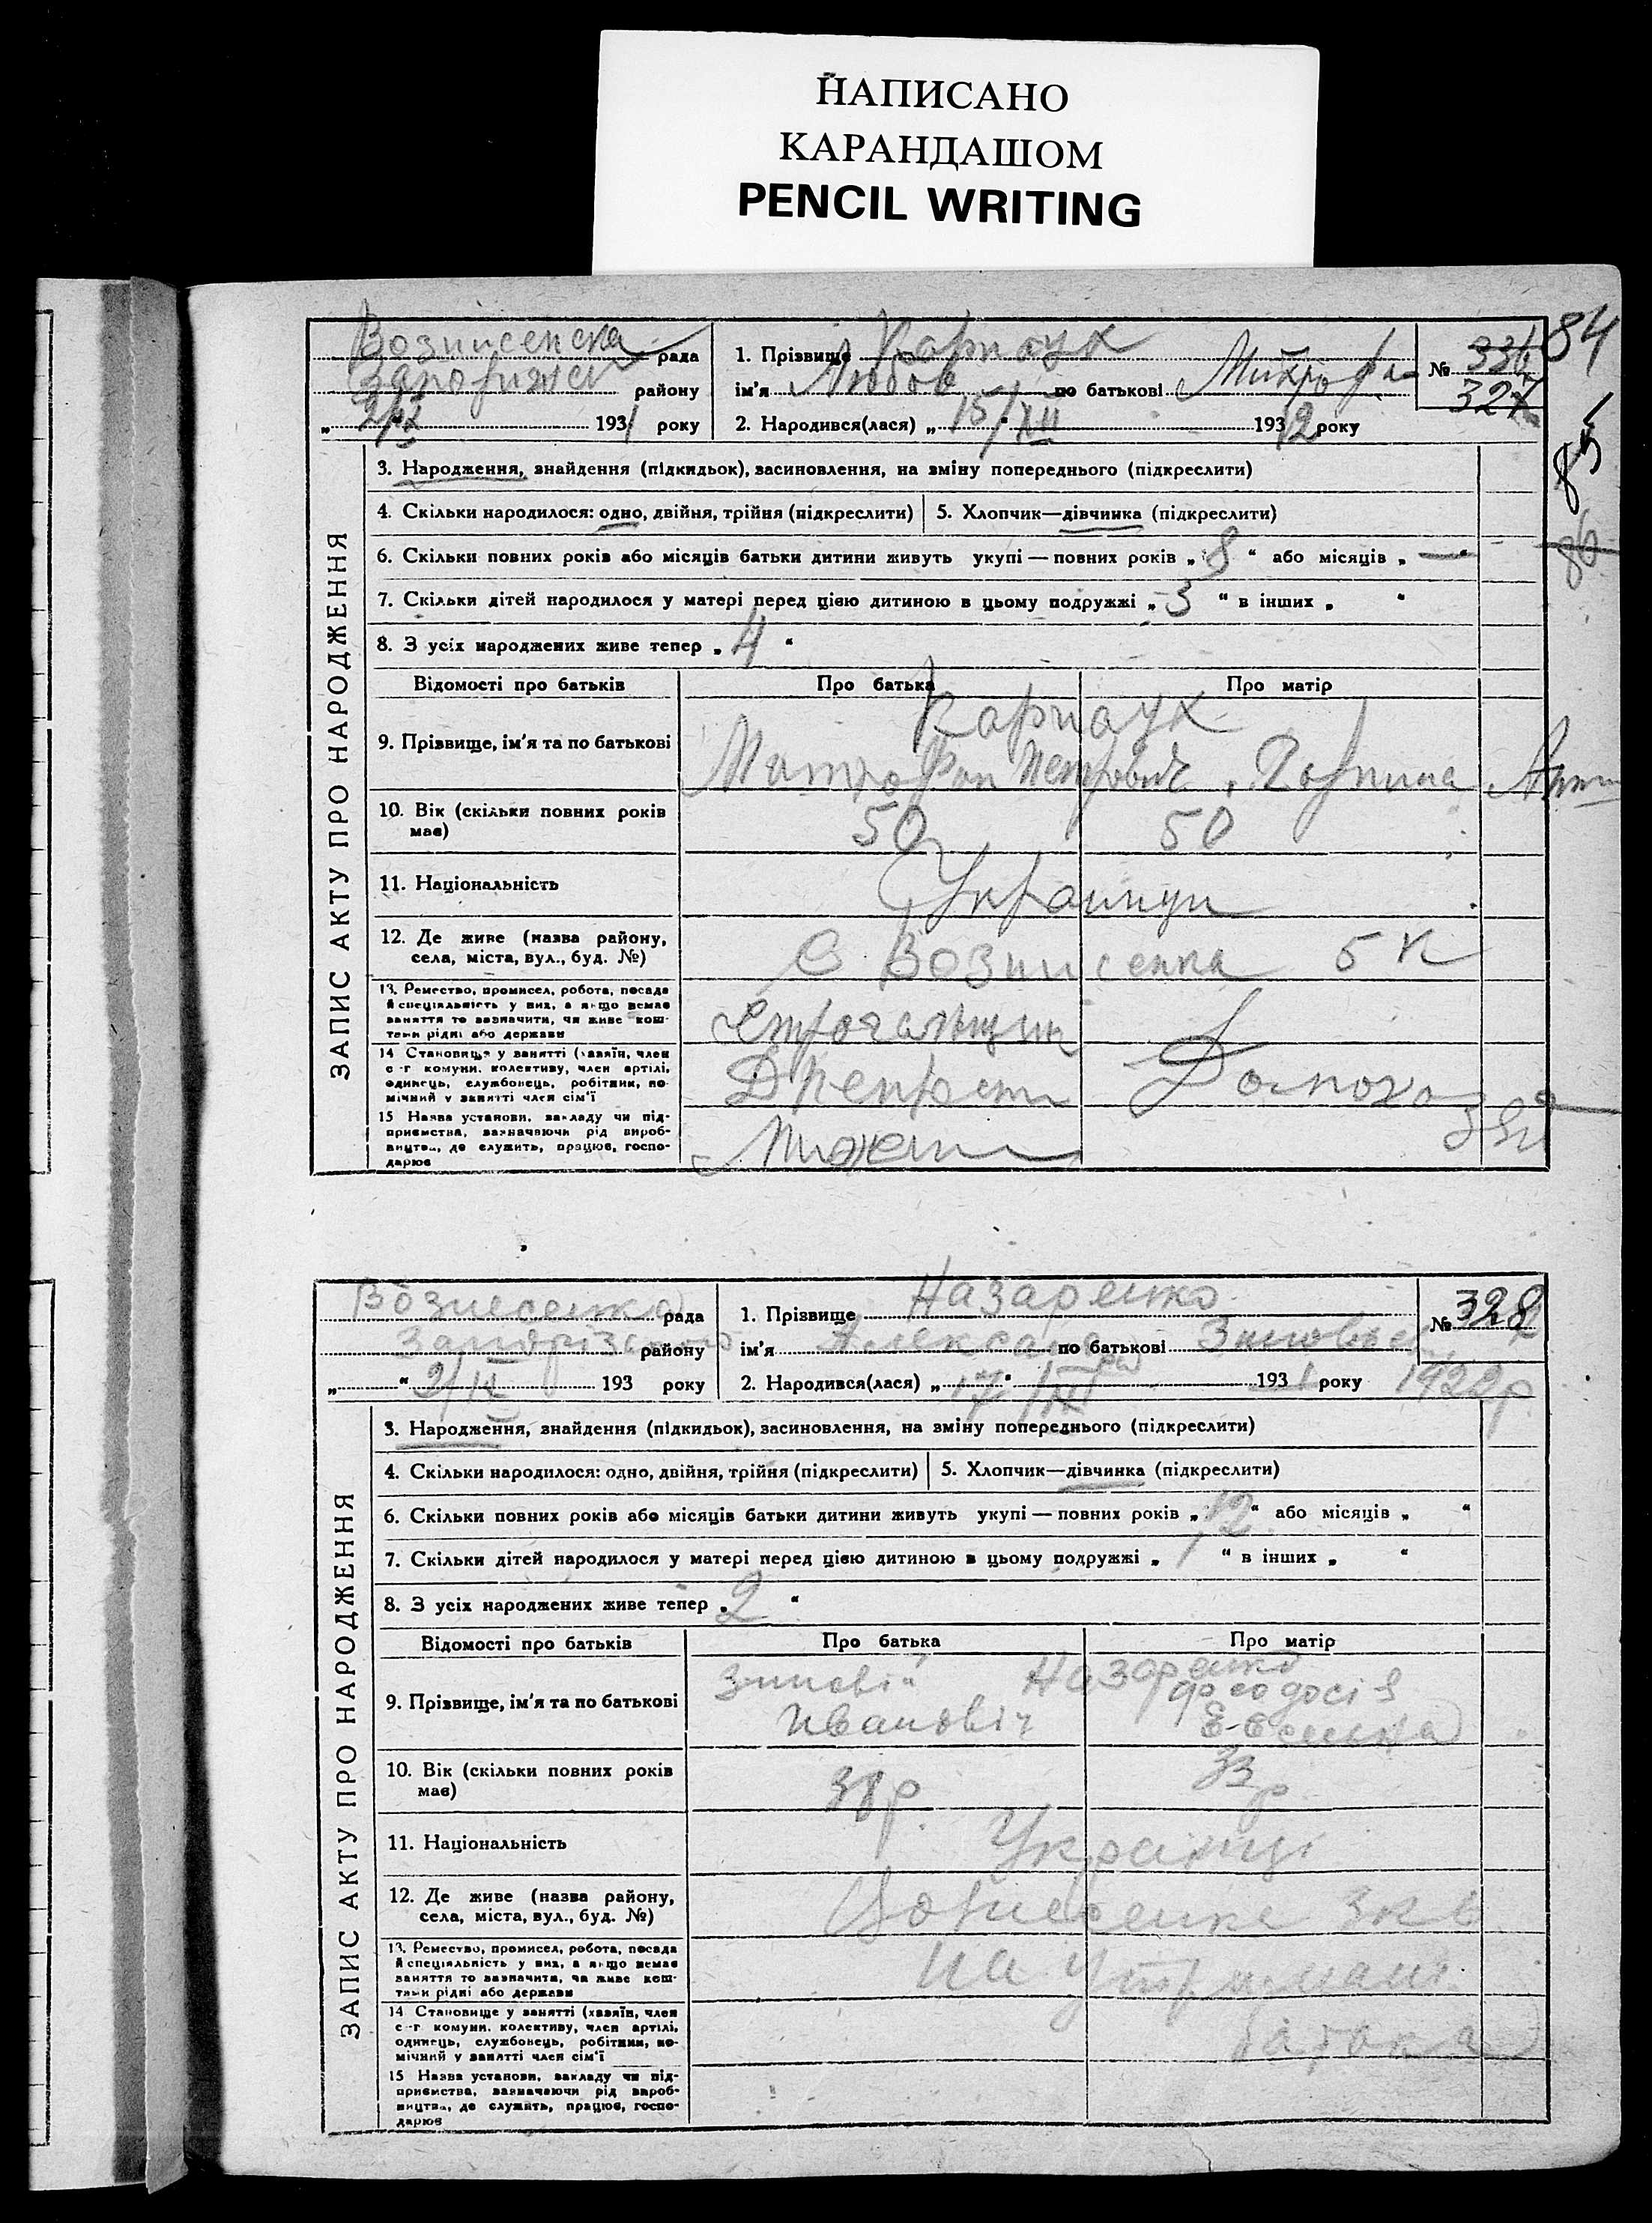 НАПИСАНО
КАРАНДАШОМ
PENCIL WRITING
84
85
86
Вознисенска рада
району
1931 року
1. Прізвище Карпаух
ім'я Любов по батькові Митроф
2. Народився(лася) „ 15/XII “ 1932 року
№ 336
327
ЗАПИС АКТУ ПРО НАРОДЖЕННЯ
3. Народження, знайдення (підкидьок), засиновлення, на зміну попереднього (підкреслити)
4. Скільки народилося: одно, двійня, трійня (підкреслити)
5. Хлопчик—дівчинка (підкреслити)
6. Скільки повних років або місяців батьки дитини живуть укупі — повних років „ 8 “ або місяців „ — “
7. Скільки дітей народилося у матері перед цією дитиною в цьому подружжі „ 3 “ в інших „ “
8. З усіх народжених живе тепер „ 4 “
Відомості про батьків
Про батька
Про матір
9. Прізвище, ім'я та по батькові
Карпаух
Митрофан Петрович
10. Вік (скільки повних років
має)
50
50
11. Національність
Украинци
12. Де живе (назва району,
села, міста, вул., буд. №)
с Вознисенка 5 к
13. Ремество, промисел, робота, посада
й спеціяльність у них, а якщо немає
заняття то зазначити, чи живе кош-
тами рідні або держави
Строгальщик
14 Становище у занятті (хазяїн, член
с-г комуни, колективу, член артілі,
одинець, службовець, робітник, по-
мічний у занятті член сім'ї
15 Назва установи, закладу чи під-
приємства, зазначаючи рід вироб-
ництва, де служить, працює, госпо-
дарює
Вознесенка рада
району
„ “ 2/IX 193 року
1. Прізвище Назаренко
ім'я Александра по батькові Зиновьев
2. Народився(лася) „ 17 “ 1931 року 1922р
№ 328
ЗАПИС АКТУ ПРО НАРОДЖЕННЯ
3. Народження, знайдення (підкидьок), засиновлення, на зміну попереднього (підкреслити)
4. Скільки народилося: одно, двійня, трійня (підкреслити)
5. Хлопчик—дівчинка (підкреслити)
6. Скільки повних років або місяців батьки дитини живуть укупі — повних років „ 12 “ або місяців „ “
7. Скільки дітей народилося у матері перед цією дитиною в цьому подружжі „ 1 “ в інших „ “
8. З усіх народжених живе тепер „ 2 “
Відомості про батьків
Про батька
Про матір
9. Прізвище, ім'я та по батькові
Назаренко
Зиновій
Иванович
Феодосія
10. Вік (скільки повних років
має)
33р
11. Національність
Украінці
12. Де живе (назва району,
села, міста, вул., буд. №)
13. Ремество, промисел, робота, посада
й спеціяльність у них, а якщо немає
заняття то зазначити, чи живе кош-
тами рідні або держави
на утримані
14 Становище у занятті (хазяїн, член
с-г комуни, колективу, член артілі,
одинець, службовець, робітник, по-
мічний у занятті член сім'ї
15 Назва установи, закладу чи під-
приємства, зазначаючи рід вироб-
ництва, де служить, працює, госпо-
дарює